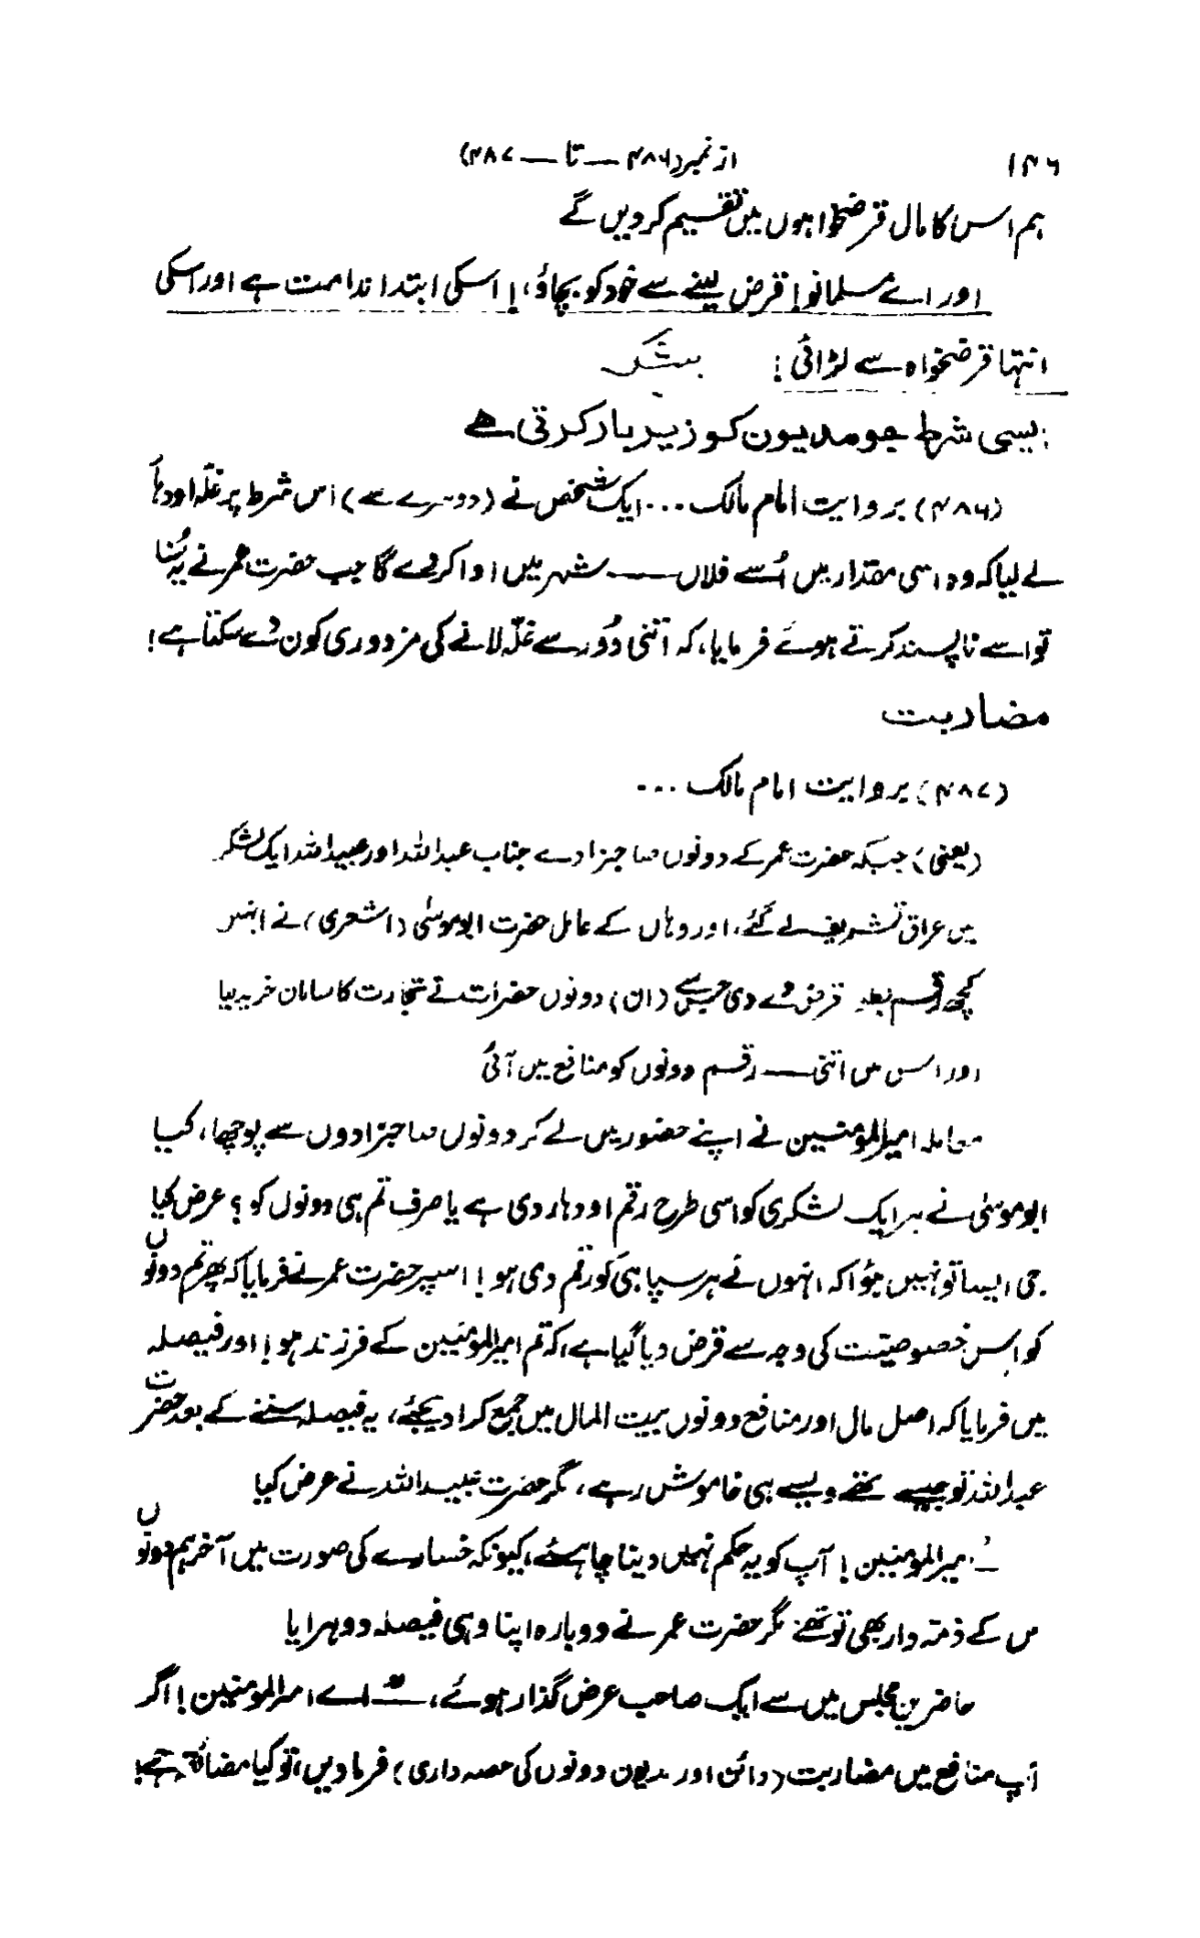 ۱۴۶ از نمبر (۴۸۶ — تا — ۴۸۷)
ہم اس کا مال قرضخواہوں میں تقسیم کر دیں گے
اور اے مسلمانو! قرض لینے سے خود کو بچاؤ،! اسکی ابتدا ندامت ہے اور اسکی
انتہا قرضخواہ سے لڑائی!
ایسی شرط جو مدیون کو زیر بار کرتی ہے
(۴۸۶) بروایت امام مالک ... ایک شخص نے (دوسرے سے) اس شرط پر غلہ اودہار
لے لیا کہ وہ اسی مقدار میں اُسے فلاں — شہر میں ادا کر دے گا جب حضرت عمر نے یہ سُنا
تو اسے ناپسند کرتے ہوئے فرمایا، کہ اتنی دُور سے غلّہ لانے کی مزدوری کون دے سکتا ہے!
مضاربت
(۴۸۷) بروایت امام مالک ...
(یعنی) جبکہ حضرت عمر کے دونوں صاحبزادے جناب عبداللہ اور عبیداللہ ایک لشکر
میں عراق تشریف لے گئے، اور وہاں کے عامل حضرت ابوموسیٰ (اشعری) نے انہیں
کچھ رقم بطور قرض دے دی جس سے (ان) دونوں حضرات نے تجارت کا سامان خرید لیا
اور اس میں اتنی — رقم دونوں کو منافع میں آئی
معاملہ امیرالمؤمنین نے اپنے حضور میں لے کر دونوں صاحبزادوں سے پوچھا، کیا
ابوموسیٰ نے ہر ایک لشکری کو اسی طرح رقم اودہار دی ہے یا صرف تم ہی دونوں کو؟ عرض کیا
جی ایسا تو نہیں ہوُا کہ انہوں نے ہر سپاہی کو رقم دی ہو! اسپر حضرت عمر نے فرمایا کہ پھر تم دونوں
کو اس خصوصیّت کی وجہ سے قرض دیا گیا ہے، کہ تم امیرالمؤمنین کے فرزند ہو! اور فیصلہ
میں فرمایا کہ اصل مال اور منافع دونوں بیت المال میں جمع کرا دیجئے، یہ فیصلہ سننے کے بعد حضرت
عبداللہ تو جیسے تھے ویسے ہی خاموش رہے، مگر حضرت عبیداللہ نے عرض کیا
امیرالمؤمنین! آپ کو یہ حکم نہیں دینا چاہئے، کیونکہ خسارے کی صورت میں آخر ہم دونوں
اس کے ذمہ دار بھی تو تھے مگر حضرت عمر نے دوبارہ اپنا وہی فیصلہ دوہرایا
حاضرین مجلس میں سے ایک صاحب عرض گذار ہوئے، — اے امیرالمومنین! اگر
آپ منافع میں مضاربت (دائن اور مدیون دونوں کی حصہ داری) فرما دیں، تو کیا مضائقہ ہے!